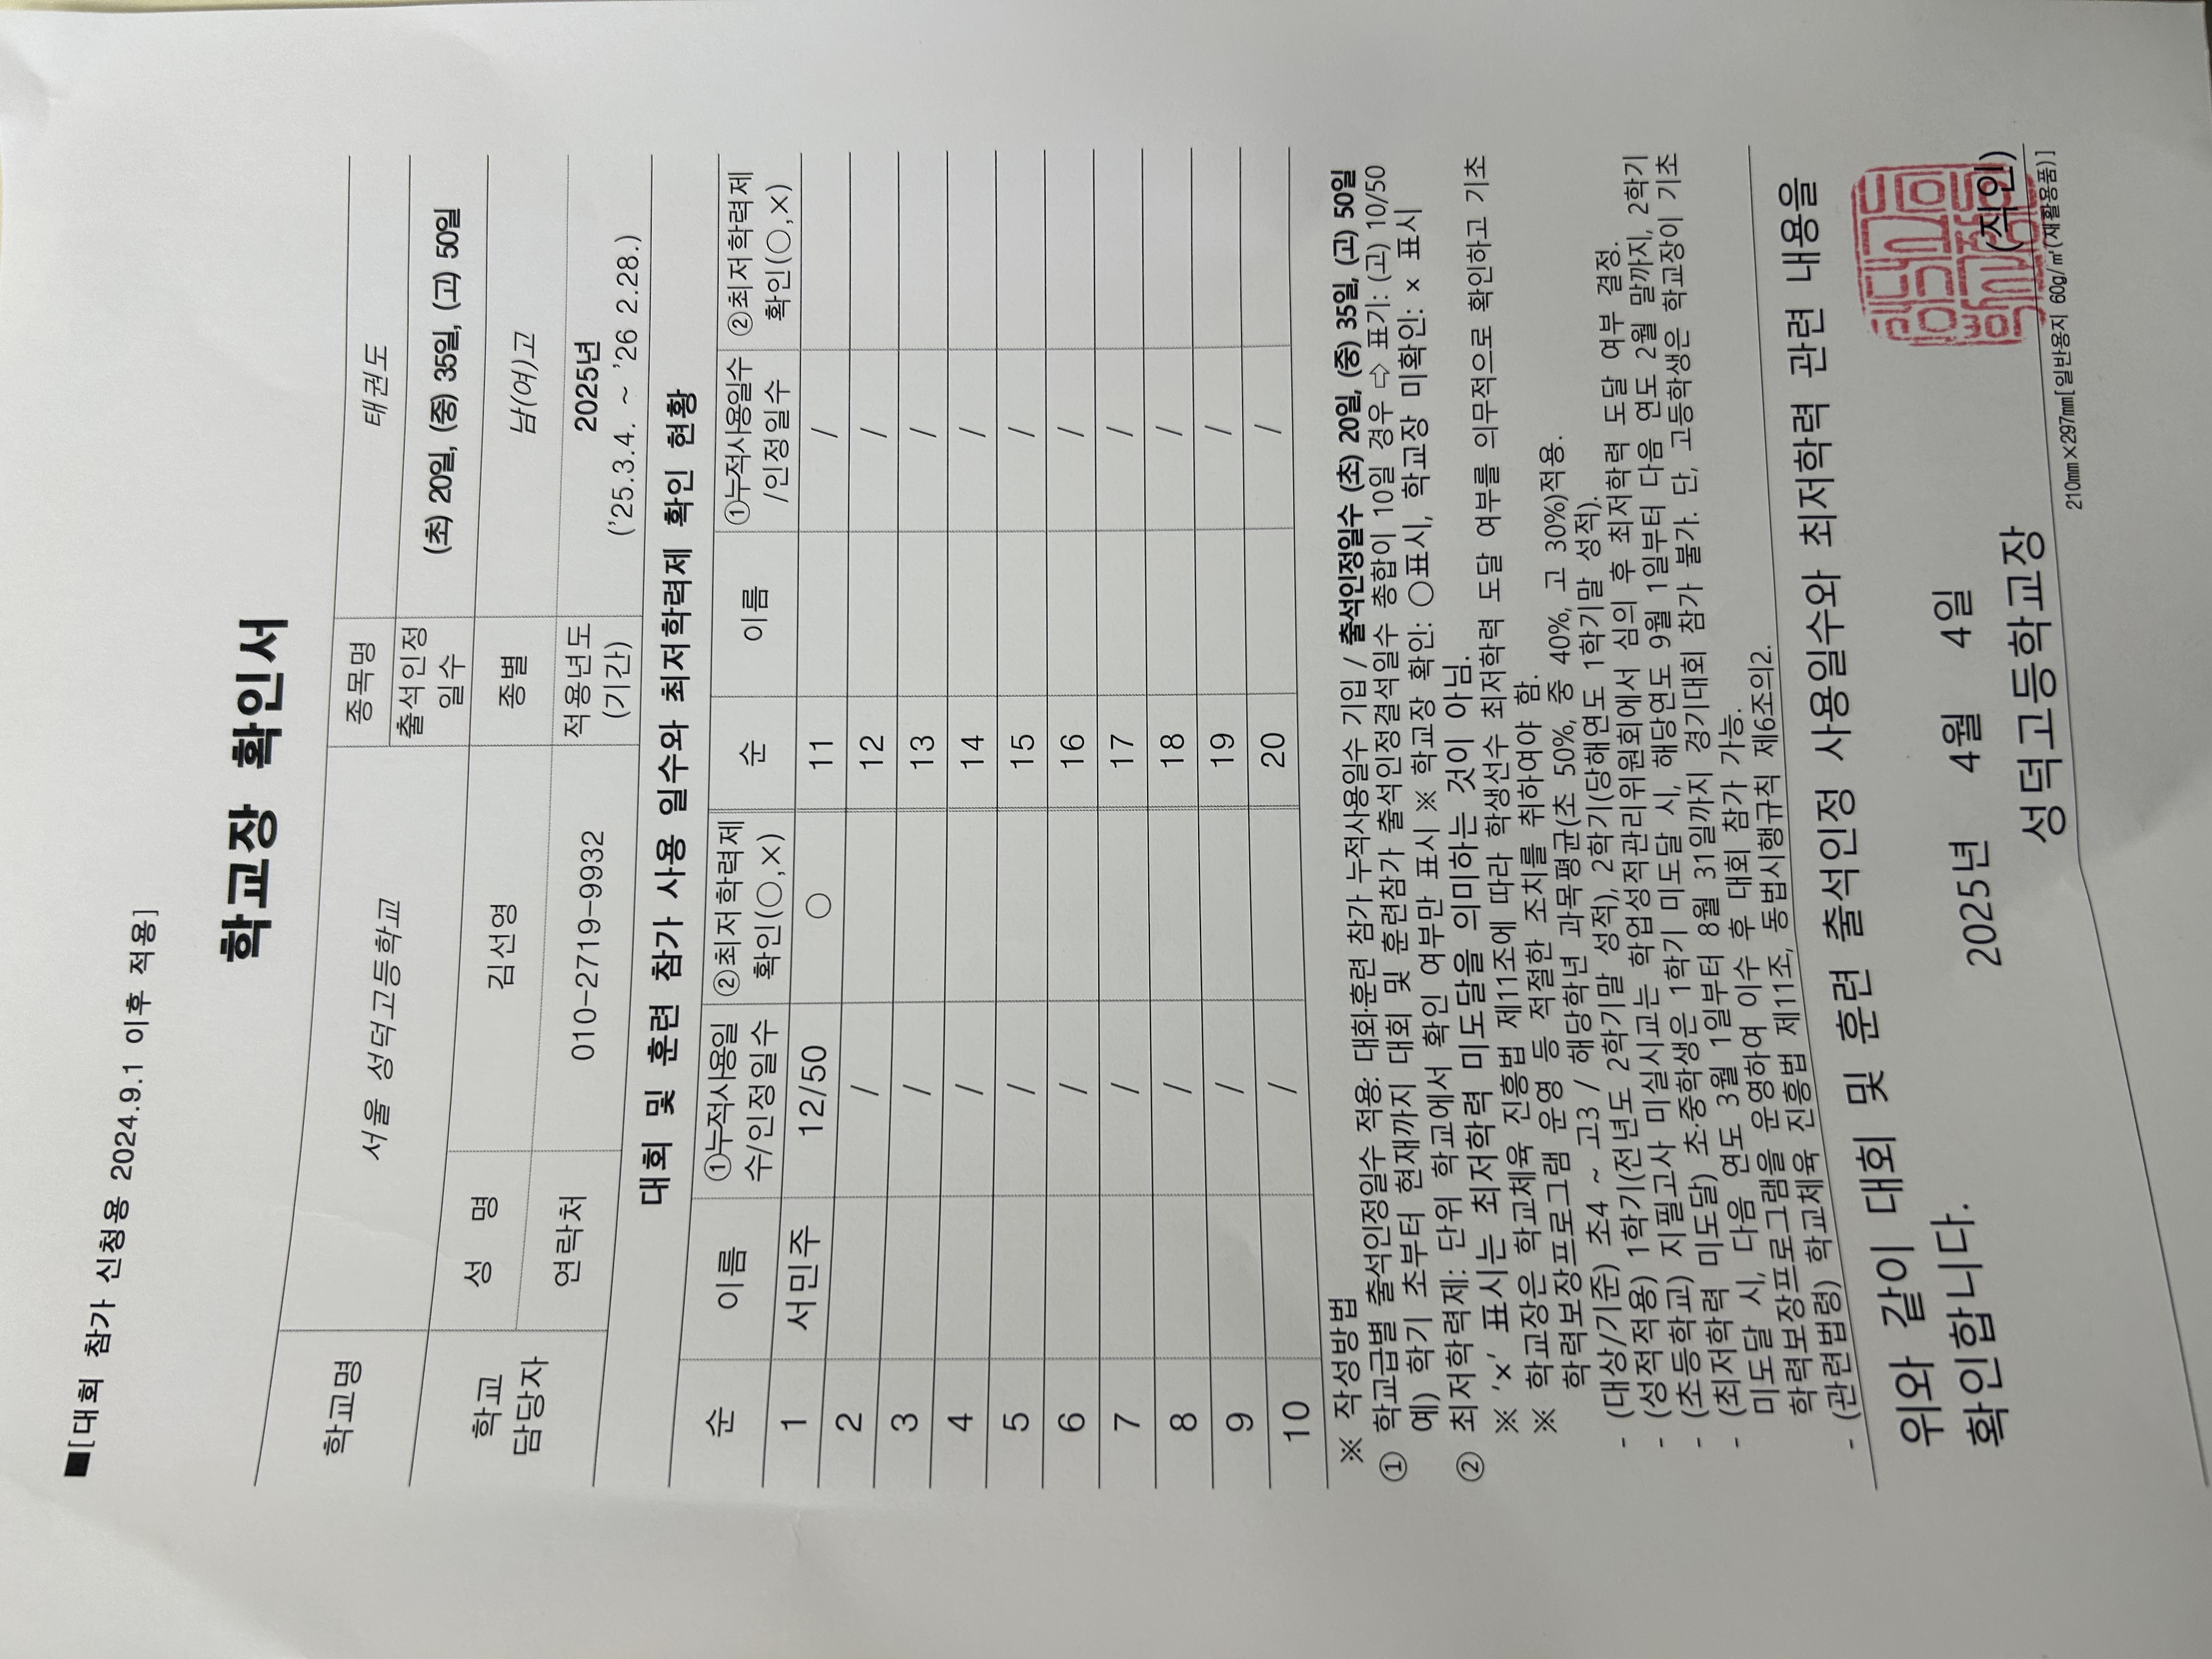 ■[대회 참가 신청용 2024.9.1 이후 적용]
학교장 확인서
학교명 서울 성덕고등학교 종목명 태권도
출석인정 일수 (초) 20일, (중) 35일, (고) 50일
학교 담당자 성 명 김선영 종별 남(여)고
연락처 010-2719-9932 적용년도 (기간) 2025년
('25.3.4. ~ '26 2.28.)
대회 및 훈련 참가 사용 일수와 최저학력제 확인 현황
순 이름 ①누적사용일수/인정일수 ②최저학력제 확인(○,×) 순 이름 ①누적사용일수/인정일수 ②최저학력제 확인(○,×)
1 서민주 12/50 ○ 11 /
2 / 12 /
3 / 13 /
4 / 14 /
5 / 15 /
6 / 16 /
7 / 17 /
8 / 18 /
9 / 19 /
10 / 20 /
※ 작성방법
① 학교급별 출석인정일수 적용: 대회·훈련 참가 누적사용일수 기입 / 출석인정일수 (초) 20일, (중) 35일, (고) 50일
예) 학기 초부터 현재까지 대회 및 훈련참가 출석인정결석일수 총합이 10일 경우 ⇨ 표기: (고) 10/50
② 최저학력제: 단위 학교에서 확인 여부만 표시 ※ 학교장 확인: ○표시, 학교장 미확인: × 표시
※ '×' 표시는 최저학력 미도달을 의미하는 것이 아님.
※ 학교장은 학교체육 진흥법 제11조에 따라 학생선수 최저학력 도달 여부를 의무적으로 확인하고 기초
학력보장프로그램 운영 등 적절한 조치를 취하여야 함.
- (대상/기준) 초4 ~ 고3 / 해당학년 과목평균(초 50%, 중 40%, 고 30%)적용.
- (성적적용) 1학기(전년도 2학기말 성적), 2학기(당해연도 1학기말 성적).
- (초등학교) 지필고사 미실시교는 학업성적관리위원회에서 심의 후 최저학력 도달 여부 결정.
- (최저학력 미도달) 초·중학생은 1학기 미도달 시, 해당연도 9월 1일부터 다음 연도 2월 말까지, 2학기
미도달 시, 다음 연도 3월 1일부터 8월 31일까지 경기대회 참가 불가. 단, 고등학생은 학교장이 기초
학력보장프로그램을 운영하여 이수 후 대회 참가 가능.
- (관련법령) 학교체육 진흥법 제11조, 동법시행규칙 제6조의2.
위와 같이 대회 및 훈련 출석인정 사용일수와 최저학력 관련 내용을
확인합니다.
2025년 4월 4일
성덕고등학교장 (직인)
210㎜×297㎜[일반용지 60g/㎡(재활용품)]